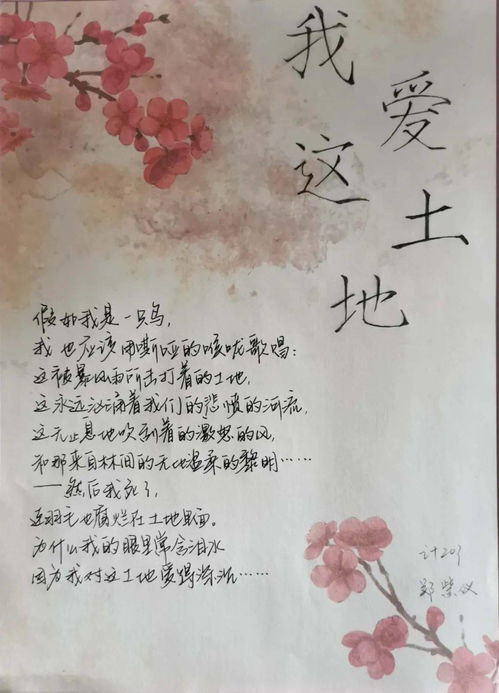 我爱这土地
假如我是一只鸟,
我也应该用嘶哑的喉咙歌唱:
这被暴风雨所击打着的土地,
这永远汹涌着我们的悲愤的河流,
这无止息地吹刮着的激怒的风,
和那来自林间的无比温柔的黎明……
——然后我死了,
连羽毛也腐烂在土地里面。
为什么我的眼里常含泪水
因为我对这土地爱得深沉……
计201
郑紫仪